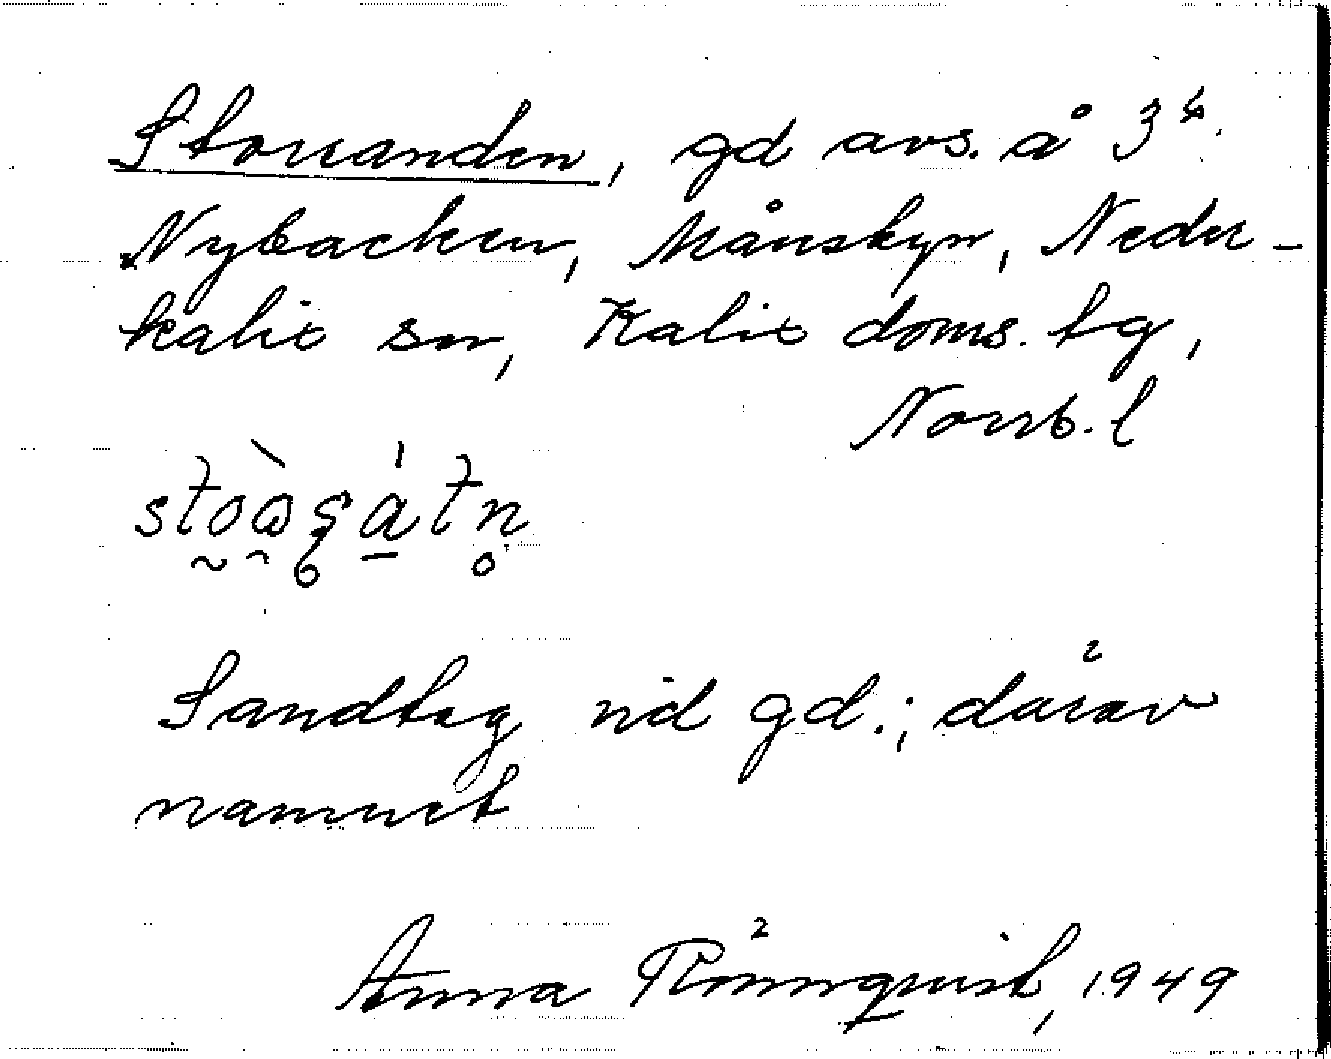 Storsanden, gd avs. å 34.
Nybacken, Månskyn, Neder-
kalix sn, Kalix doms. tg,
Norrb. l
Sandtag vid gd.; därav
namnet
Anna Rönnquist, 1949